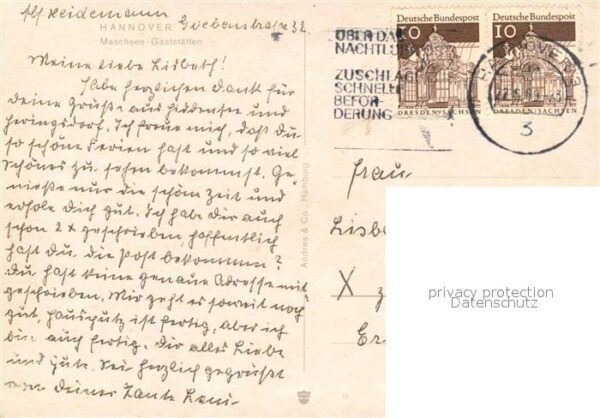 Abs. Heidemann
Goebenstraße 32
HANNOVER
Maschsee-Gaststätten
Meine liebe Lisbeth!
Habe herzlichen Dank für
deine Grüße aus Hiddensee und
Heringsdorf. Ich freue mich, daß du
so schöne Ferien hast und so viel
Schönes zu sehen bekommst. Ge
nieße nur die schöne Zeit und
erhole dich gut. Ich habe dir auch
schon 2 x geschrieben, hoffentlich
hast du die Post bekommen?
Du hast keine genaue Adresse mit
geschrieben. Mir geht es soweit noch
gut, Hausputz ist fertig, aber ich
bin auch fertig. Dir alles Liebe
und Gute. Sei herzlich gegrüßt
von deiner Tante Leni.
Andres & Co. Hamburg
ÜBER DAS
ZUSCHLAG
SCHNELLE
BEFÖR-
DERUNG
Deutsche Bundespost
10
DRESDEN/SACHSEN
Deutsche Bundespost
10
DRESDEN/SACHSEN
HANNOVER 3
3
Frau
Lisbe
X
privacy protection
Datenschutz